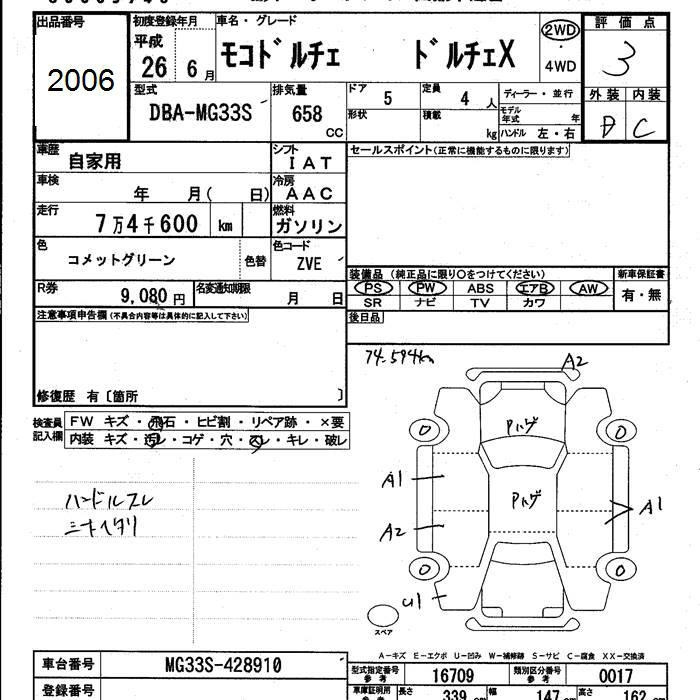 出品番号
2006
初度登録年月
平成
26年 6月
車名・グレード
モコドルチェ ドルチェX
2WD
・
4WD
評価点
3
型式
DBA-MG33S
排気量
658
CC
ドア
5
定員
4人
ディーラー・並行
形状
積載
kg
モデル年式
年
ハンドル 左・右
外装 内装
D C
車歴
自家用
シフト
IAT
セールスポイント(正常に機能するものに限ります)
車検
年 月( 日)
冷房
AAC
走行
7万4千600 km
燃料
ガソリン
色
コメットグリーン
色替
色コード
ZVE
装備品 (純正品に限り○をつけてください)
新車保証書
PS PW ABS エアB AW
SR ナビ TV カワ
有・無
R券
9,080円
名変通知期限
月 日
後日品
注意事項申告欄(不具合内容等は具体的に記入して下さい)
修復歴 有〔箇所 〕
検査員記入欄
FW キズ・飛石・ヒビ割・リペア跡・×要
内装 キズ・汚レ・コゲ・穴・スレ・キレ・破レ
74.594km
A2
Pハゲ
Pハゲ
0
0
A1
A1
A2
0
0
U1
スペア
ハンドルスレ
シートヘタリ
A-キズ E-エクボ U-凹み W-補修跡 S-サビ C-腐食 XX-交換済
車台番号
MG33S-428910
型式指定番号
参考
16709
類別区分番号
参考
0017
登録番号
車庫証明用
参考
長さ
339 cm
幅
147 cm
高さ
162 cm